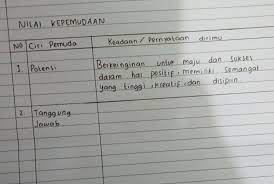 NILAI KEPEMUDAAN
NO Ciri Pemuda Keadaan / Pernyataan dirimu
1. Potensi Berkeinginan untuk maju dan sukses
dalam hal positif, memiliki semangat
yang tinggi, kreatif, dan disiplin
2. Tanggung
Jawab